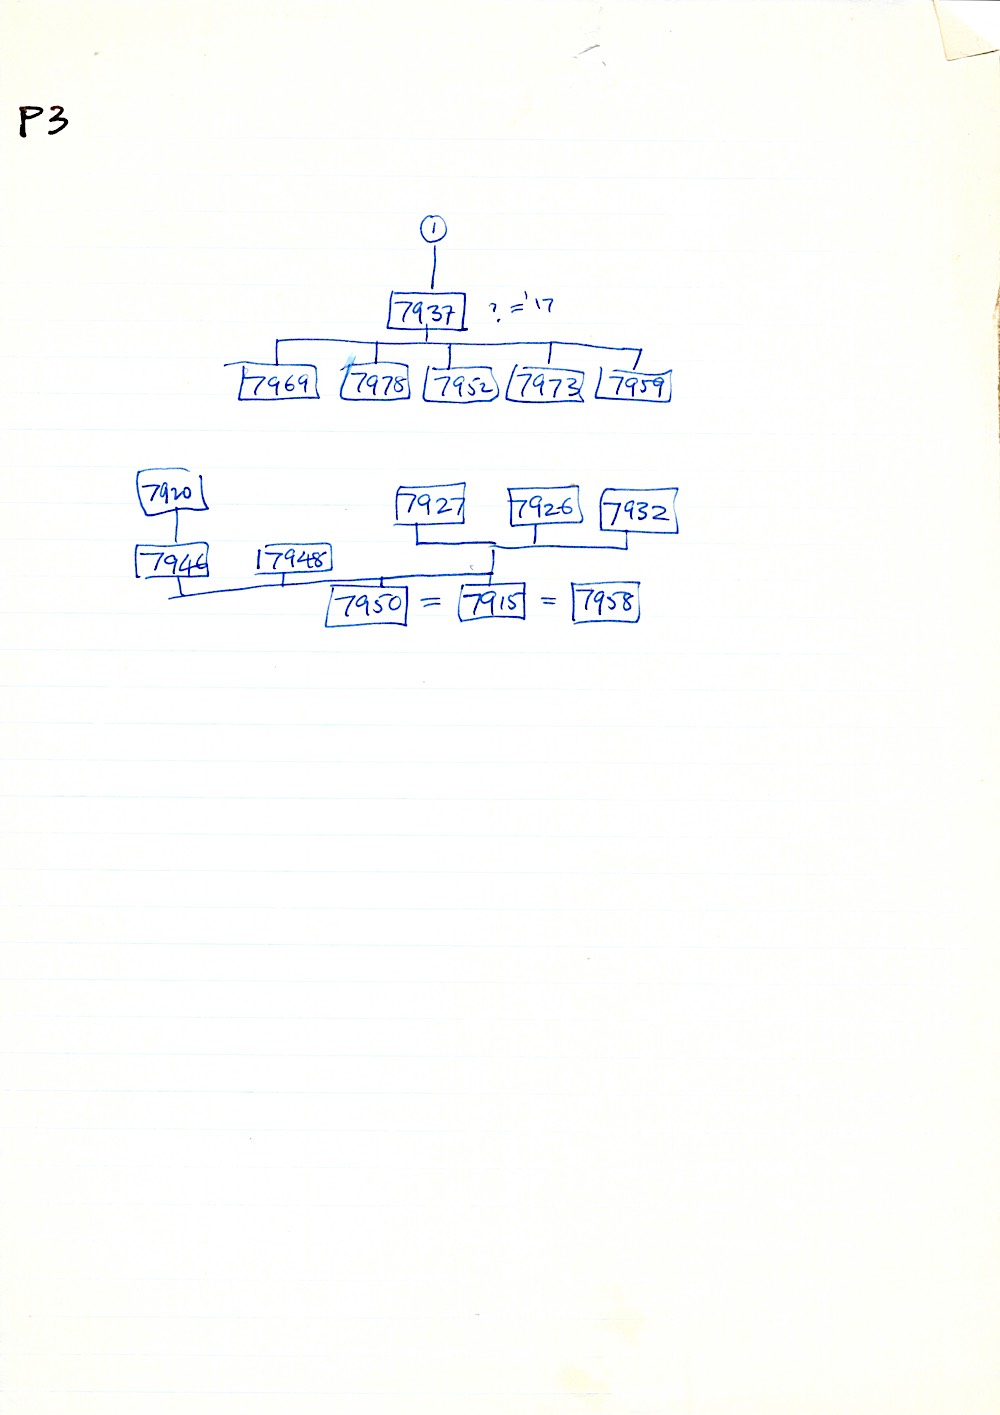 P3
1
7937 ? = '17
7969 7978 7952 7973 7959
7920 7927 7926 7932
7946 7948
7950 = 7915 = 7958